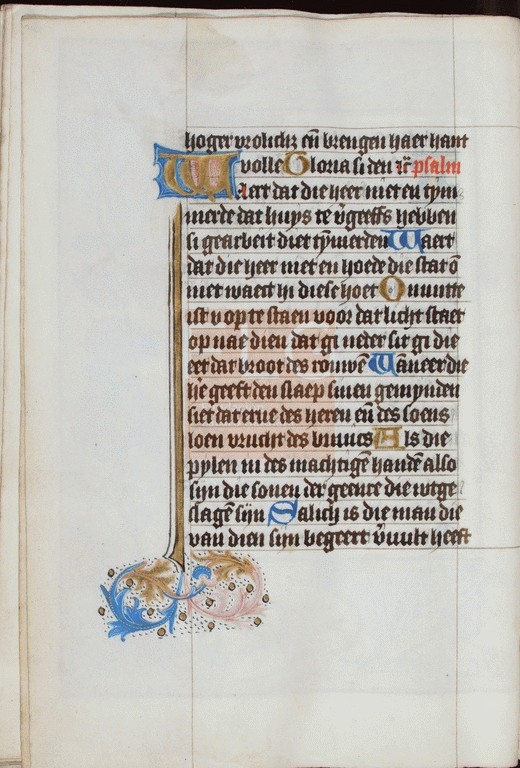 hoger vrolichz eñ brengen haer hant
volle Gloria si den ꝛc̄ psalm
Waert dat die heer niet en tym
merde dat huys te v̄geeffs hebben
si gearbeit diet tȳmerden Waert
dat die heer niet en hoede die stat ō
niet waect hi diese hoet Onnutte
ist v op te staen voor dat licht staet
op nae dien dat gi neder sit gi die
eet dat broot des rouwē Wāneer die
hē geeft den slaep sinen gemynden
siet dat erue des heren eñ des soens
loen vrucht des buucs Als die
pylen in des machtigē handē also
sijn die sonen der geenre die wtge
slagē sijn Salich is die man die
van dien sijn begeert v̄uult heeft